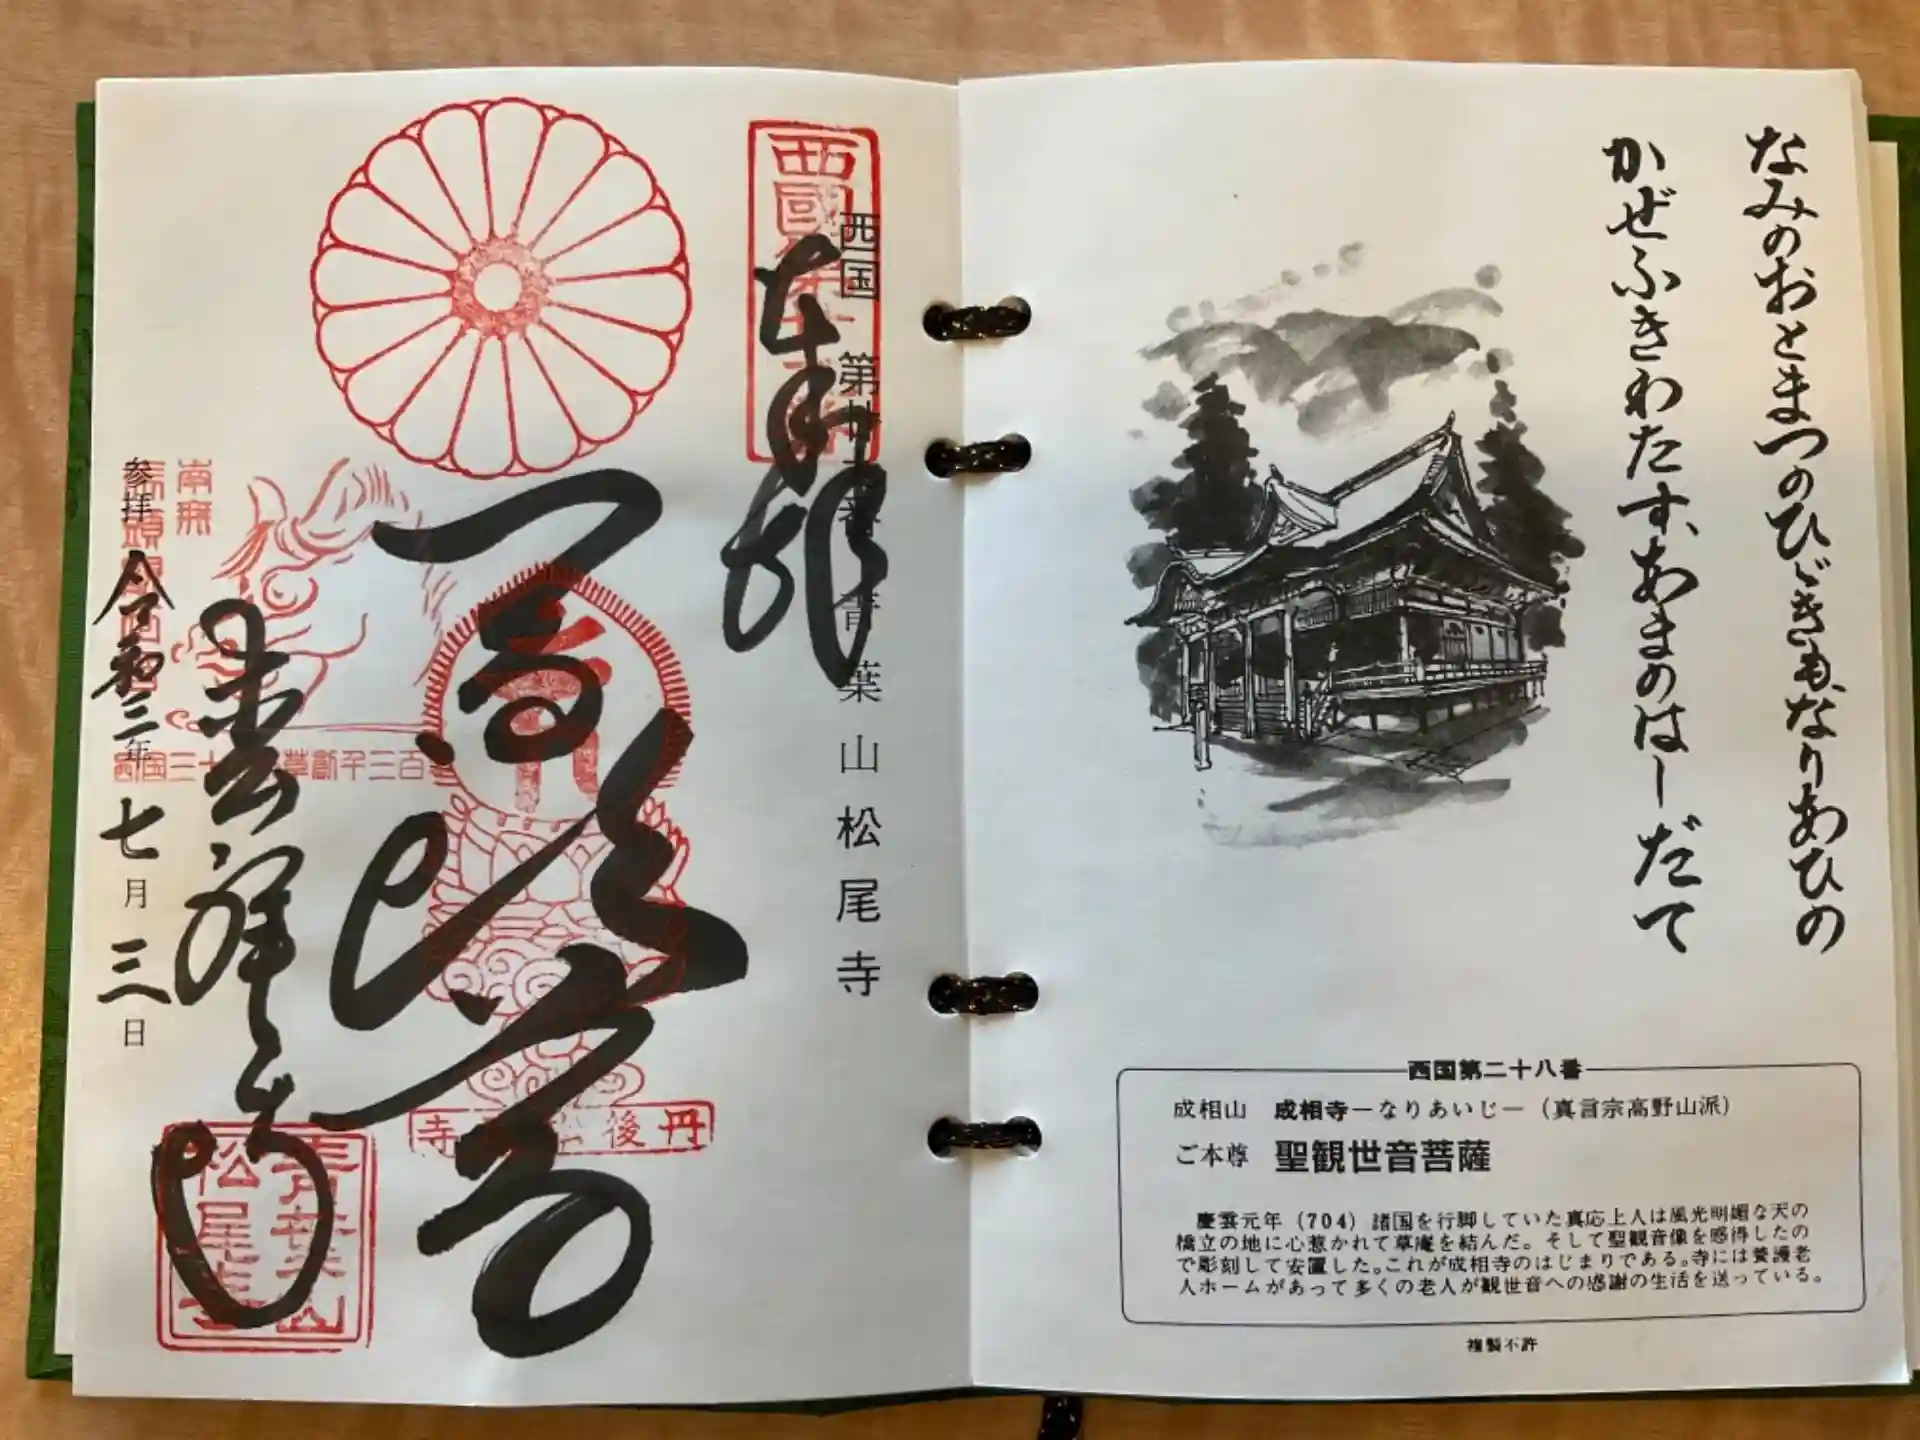 なみのおとまつのひゞきも、なりあひの
かぜふきわたす、あまのはしだて
西国第二十八番
成相山 成相寺−なりあいじ−（真言宗高野山派）
ご本尊 聖観世音菩薩
慶雲元年（704）諸国を行脚していた真応上人は風光明媚な天の
橋立の地に心惹かれて草庵を結んだ。そして聖観音像を感得したの
で彫刻して安置した。これが成相寺のはじまりである。寺には養護老
人ホームがあって多くの老人が観世音への感謝の生活を送っている。
複製不許
奉拝
西国 第廿九番 青葉山松尾寺
馬頭尊
松尾寺
参拝 令和三年七月三日
南無
青葉山
松尾寺